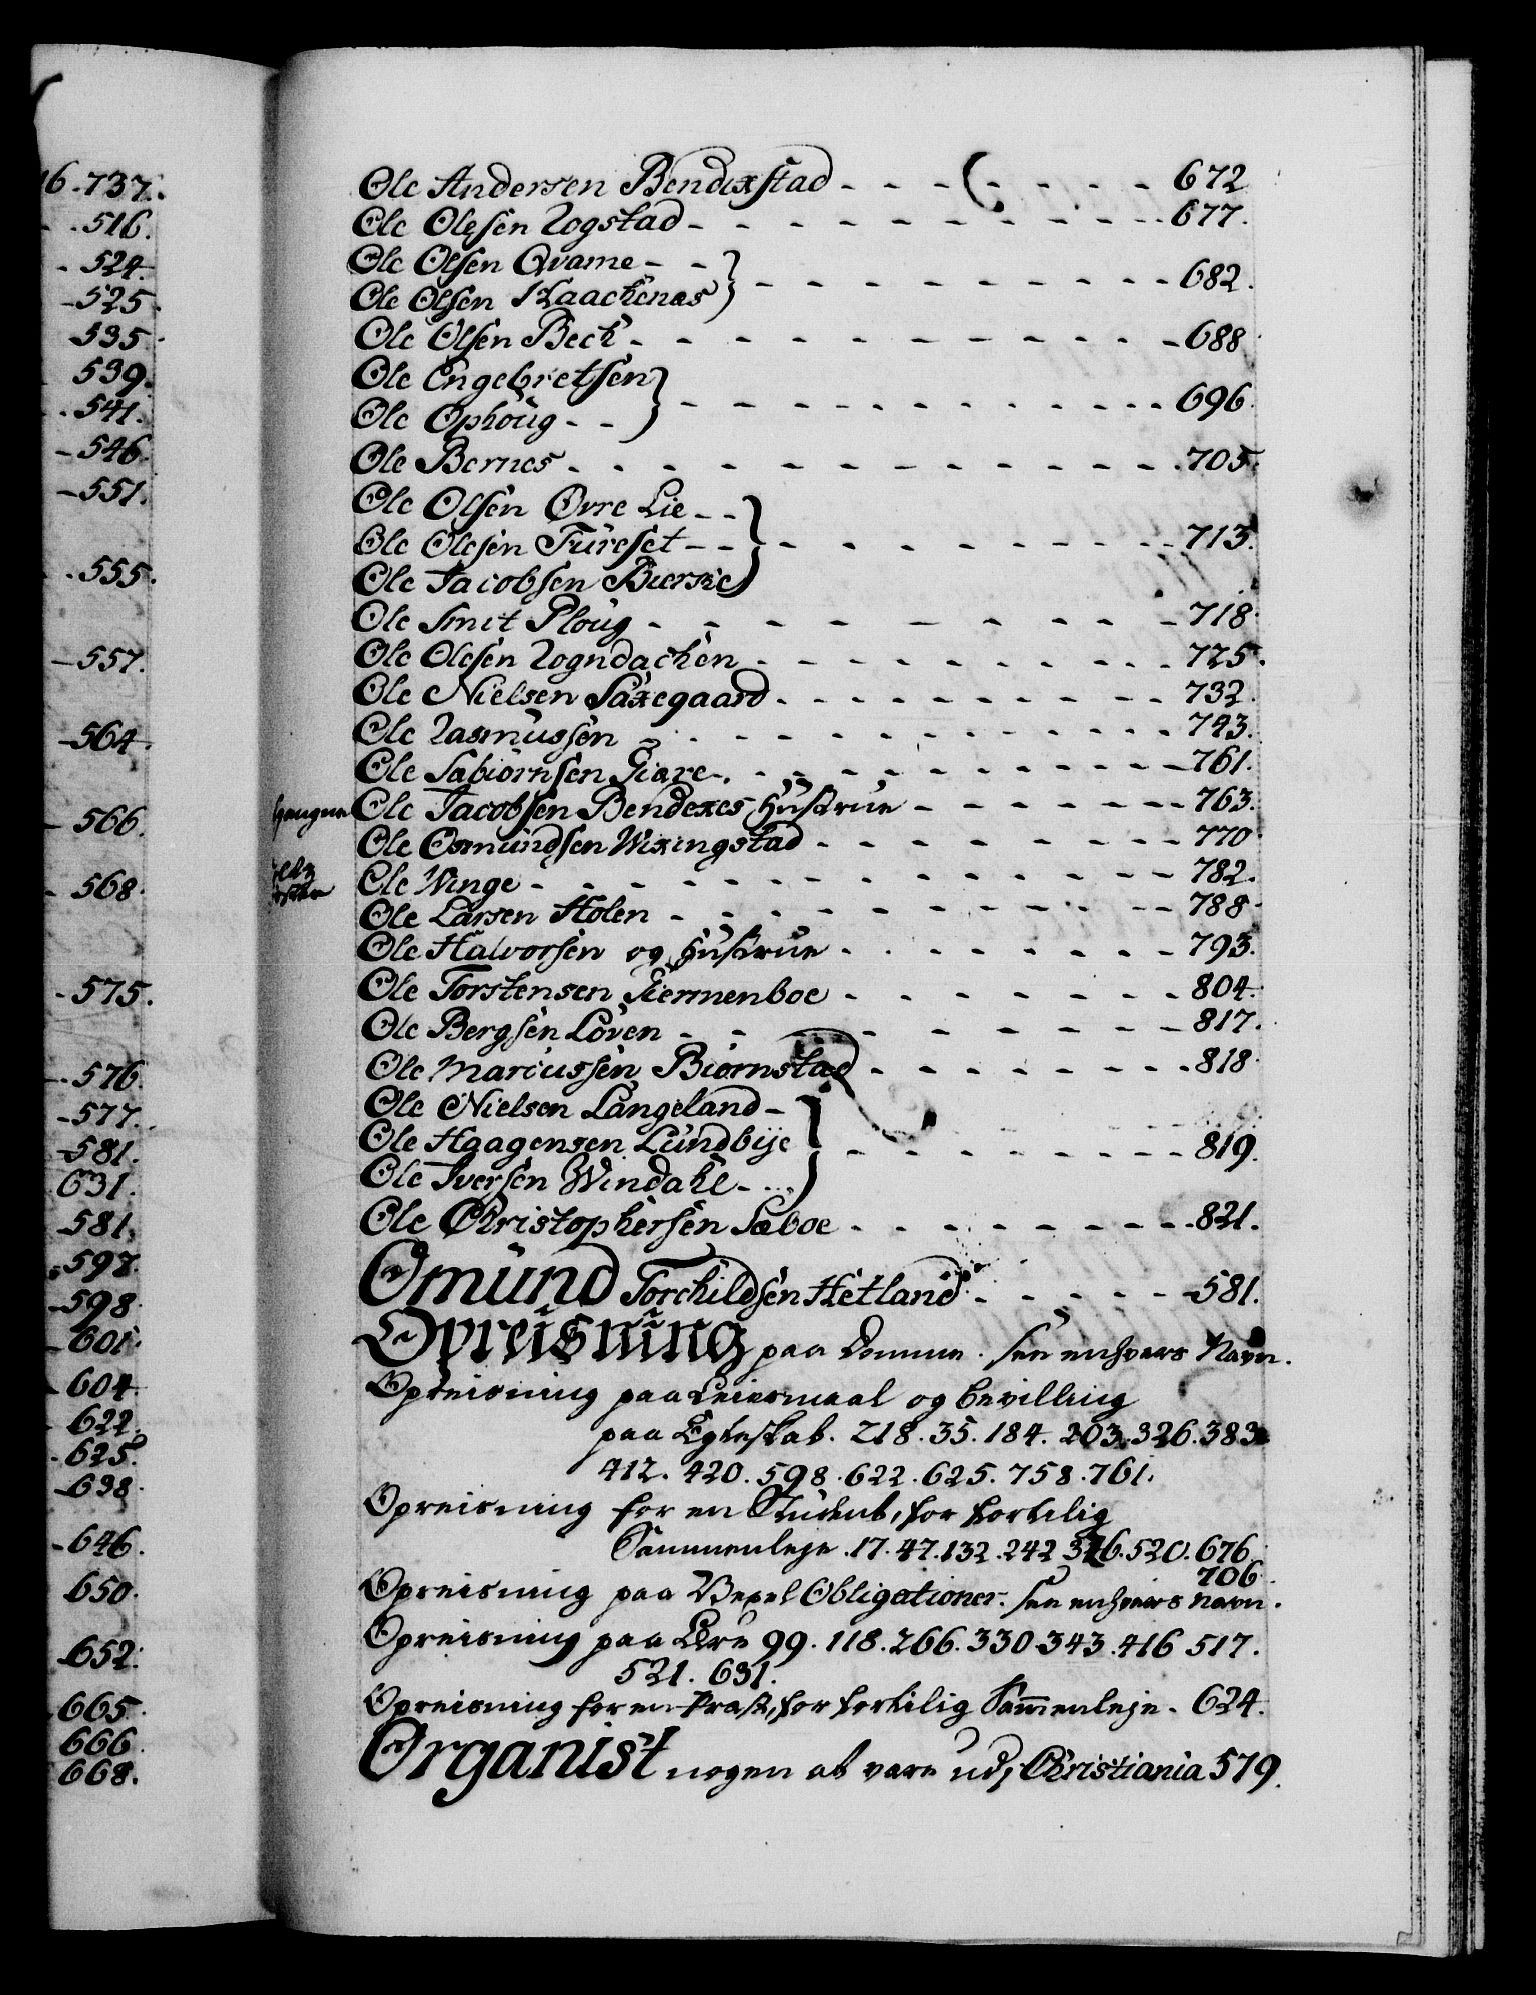 16.737.
516.
524.
525.
535.
539.
541.
546.
551.
555.
557.
564.
566.
568.
575.
576.
577.
581.
631.
581.
597.
598.
601.
604.
622.
625.
638.
646.
650.
652.
665.
666
668.
Ole Andersen Bendixstad - - - - - - - 672
Ole Olesen Rogstad - - - - - - - - - 677.
Ole Olsen Qvame - -
Ole Olsen Kaackenæs } - - - - - - - - 682.
Ole Olsen Beck - - - - - - - - - - 688
Ole Engebretsen
Ole Ophoug - - } - - - - - - - - - 696.
Ole Bernes - - - - - - - - - - - 705.
Ole Olsen Øvre Lie - -
Ole Olesen Tureset - - } - - - - - - - 713.
Ole Jacobsen Bierke
Ole Smit Ploug - - - - - - - - - 718.
Ole Olesen Rogndacken - - - - - - - - 725.
Ole Nielsen Saxegaard - - - - - - - - 732.
Ole Rasmussen - - - - - - - - - - 743.
Ole Sabiørnsen Giare - - - - - - - - 761.
Ole Jacobsen Bendexes Hustrue - - - - - - 763.
Ole Osmundsen Wixingstad - - - - - - - 770
Ole Winge - - - - - - - - - - - 782.
Ole Larsen Holen - - - - - - - - - 788.
Ole Halvorsen og Hustrue - - - - - - - 793.
Ole Torstensen Giermenboe - - - - - - - 804.
Ole Bergsen Løven - - - - - - - - - 817.
Ole Marcussen Biørnstad - - - - - - - 818.
Ole Nielsen Langeland -
Ole Haagensen Lundbye } - - - - - - - 819.
Ole Iversen Windahl - - -
Ole Christophersen Sæboe - - - - - - - 821.
Omund Torchildsen Hetland - - - - - 581.
Opreisning paa Domme. see enhvers Navn.
Opreisning paa Leiermaal og bevilling
paa Egteskab. 218. 35. 184. 203. 326. 383
412. 420. 598. 622. 625. 758. 761.
Opreisning for en Student, for fortilig
Sammenleje. 17. 47. 132. 242 376. 520. 676
706
Opreisning paa Vexel Obligationer. see enhvers navn.
Opreisning paa Ære 99. 118. 266. 330. 343. 416 517.
521. 631.
Opreisning for en Præst, for fortilig Sam̄enleje. 624.
Organist nogen at være udj Christiania 579.